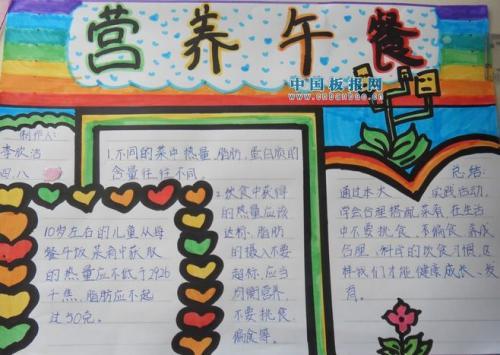 营养午餐
中国板报网
www.cnbanbao.cn
制作人:
李欣洁
四.八
1.不同的菜中热量、脂肪、蛋白质的
含量往往不同。
10岁左右的儿童从每
餐午饭菜肴中获取
的热量应不低于2926
千焦,脂肪应不超
过50克。
2.饮食中获得
的热量应该
达标,脂肪
的摄入不要
超标,应当
均衡营养,
不要挑食、
偏食等。
总结:
通过本次 实践活动,
学会合理搭配菜肴,在生活
中不要挑食、不偏食,养成
合理、科学的饮食习惯,这
样我们才能健康成长、发
育。